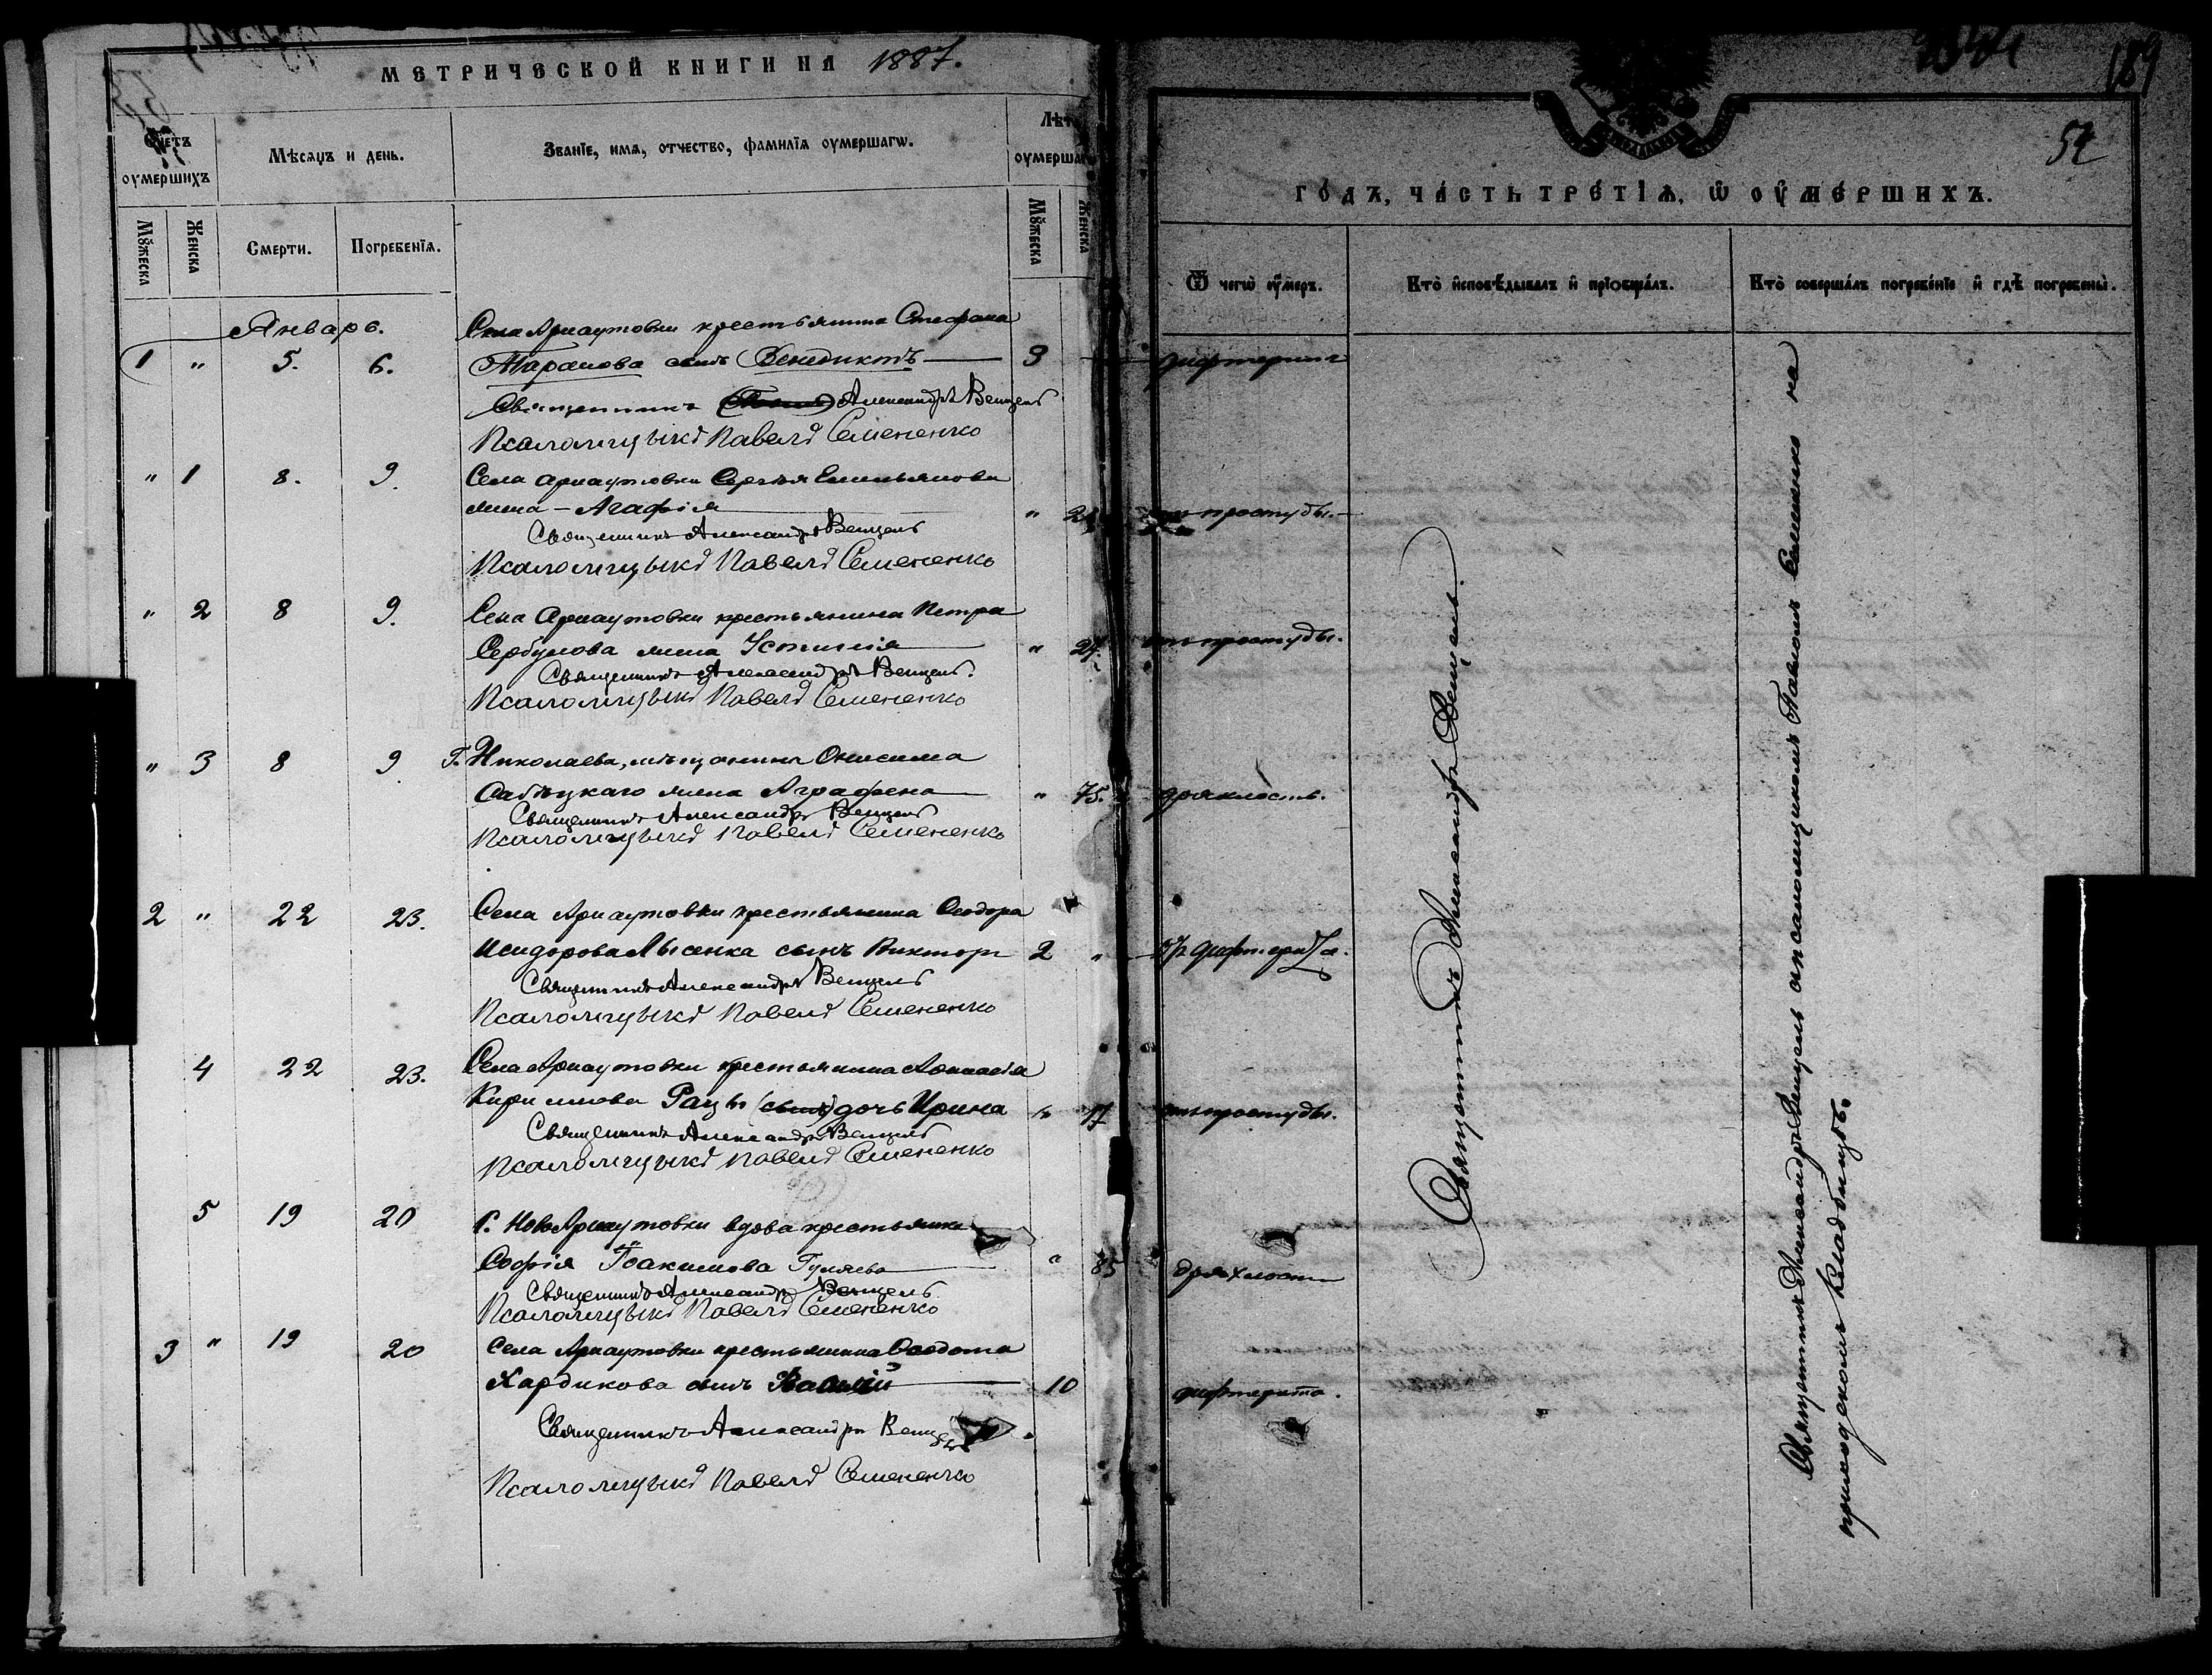 МЕТРИЧЕСКОЙ КНИГИ НА 1887.
Счетъ оумершихъ
Мѣсяцъ и день.
Званіе, имя, отчество, фамилія оумершагѡ.
Лѣт
оумерша
Мꙋжеска
Женска
Смерти.
Погребенїя.
Мꙋжеска
Женска
Январь.
Села Арнаутовки крестьянина Стефана
1 " 5. 6. Таранова сынъ Венедиктъ 3
Священникъ Александръ Венцель
Псаломщикъ Павелъ Семененко
" 1 8. 9. Села Арнаутовки Сергѣя Емельянова
жена - Агафія "
Священникъ Александръ Венцель
Псаломщикъ Павелъ Семененко
" 2 8 9. Села Арнаутовки крестьянина Петра
Сербулова жена Устинія " 27.
Священникъ Александръ Венцель.
Псаломщикъ Павелъ Семененко
" 3 8 9 Г. Николаева, мѣщанина Онисима
жена Аграфена " 75.
Священникъ Александръ Венцель
Псаломщикъ Павелъ Семененко
2 " 22 23. Села Арнаутовки крестьянина Ѳеодора
Исидорова Лысенка сынъ Викторъ 2 "
Священникъ Александръ Венцель
Псаломщикъ Павелъ Семененко
4 22 23. Села Арнаутовки крестьянина Аѳанасія
Кирилова Рацы (сынъ) дочь Ирина "
Священникъ Александръ Венцель
Псаломщикъ Павелъ Семененко
5 19 20 С. НовоАрнаутовки вдова крестьянка
Софія Іоакимова Гуляева " 85
Священникъ Александръ Венцель
Псаломщикъ Павелъ Семененко
3 " 19 20 Села Арнаутовки крестьянина Ѳеодота
Хардикова сынъ Василій 10
Священникъ Александръ Венцель
Псаломщикъ Павелъ Семененко
189
54
ГОДЪ, ЧАСТЬ ТРЕТІЯ, Ѡ ОУМЕРШИХЪ.
Ѿ чегѡ оумеръ.
Кто исповѣдывалъ и прїобщалъ.
Кто совершалъ погребенїе и гдѣ погребены.
отъ простуды.
отъ простуды.
дряхлость.
отъ дифтерита.
отъ простуды.
дряхлости
дифтерита.
Священникъ Александръ Венцель.
Священникъ Александръ Венцель съ псаломщикомъ Павломъ Семененко на
приходскомъ кладбищѣ.